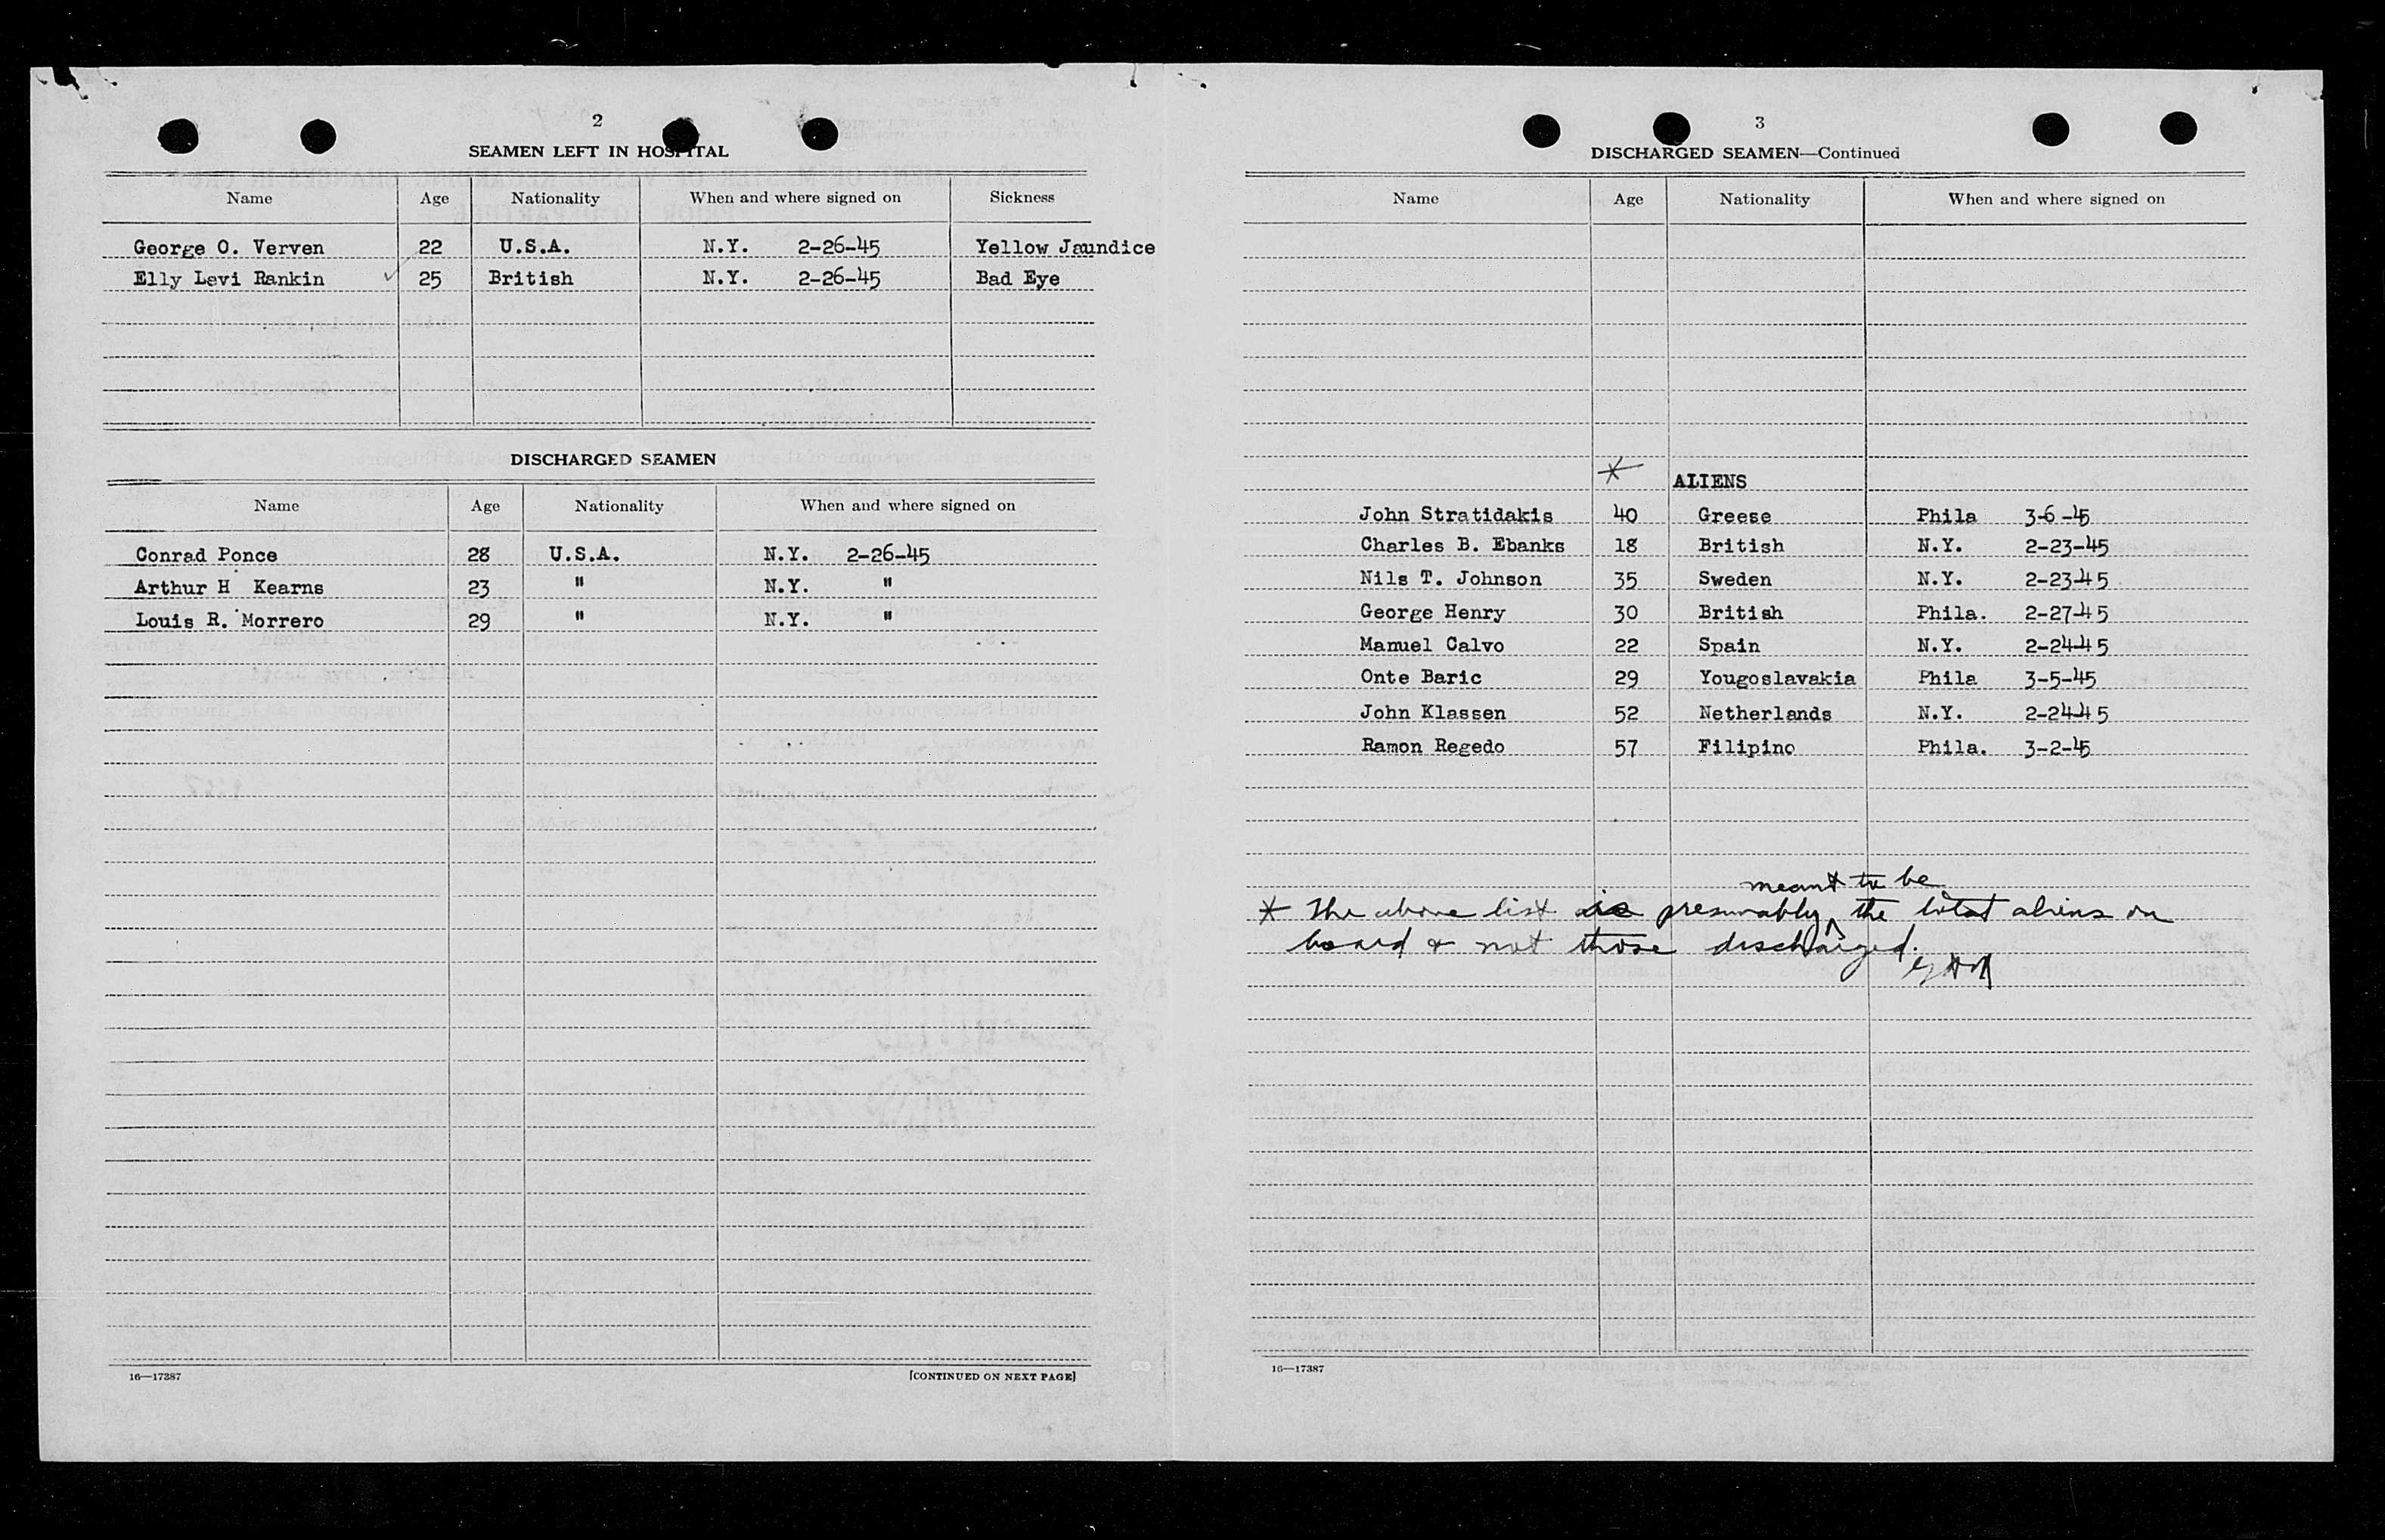 2
SEAMEN LEFT IN HOSPITAL
Name Age Nationality When and where signed on Sickness
George O. Verven 22 U.S.A. N.Y. 2-26-45 Yellow Jaundice
Elly Levi Rankin ✓ 25 British N.Y. 2-26-45 Bad Eye
DISCHARGED SEAMEN
Name Age Nationality When and where signed on
Conrad Ponce 28 U.S.A. N.Y. 2-26-45
Arthur H Kearns 23 " N.Y. "
Louis R. Morrero 29 " N.Y. "
16—17387 [CONTINUED ON NEXT PAGE]
3
DISCHARGED SEAMEN—Continued
Name Age Nationality When and where signed on
* ALIENS
John Stratidakis 40 Greese Phila 3-6-45
Charles B. Ebanks 18 British N.Y. 2-23-45
Nils T. Johnson 35 Sweden N.Y. 2-23-45
George Henry 30 British Phila. 2-27-45
Manuel Calvo 22 Spain N.Y. 2-24-45
Onte Baric 29 Yougoslavakia Phila 3-5-45
John Klassen 52 Netherlands N.Y. 2-24-45
Ramon Regedo 57 Filipino Phila. 3-2-45
meant to be
* The above list is presumably the total aliens on
board & not those discharged.
16—17387